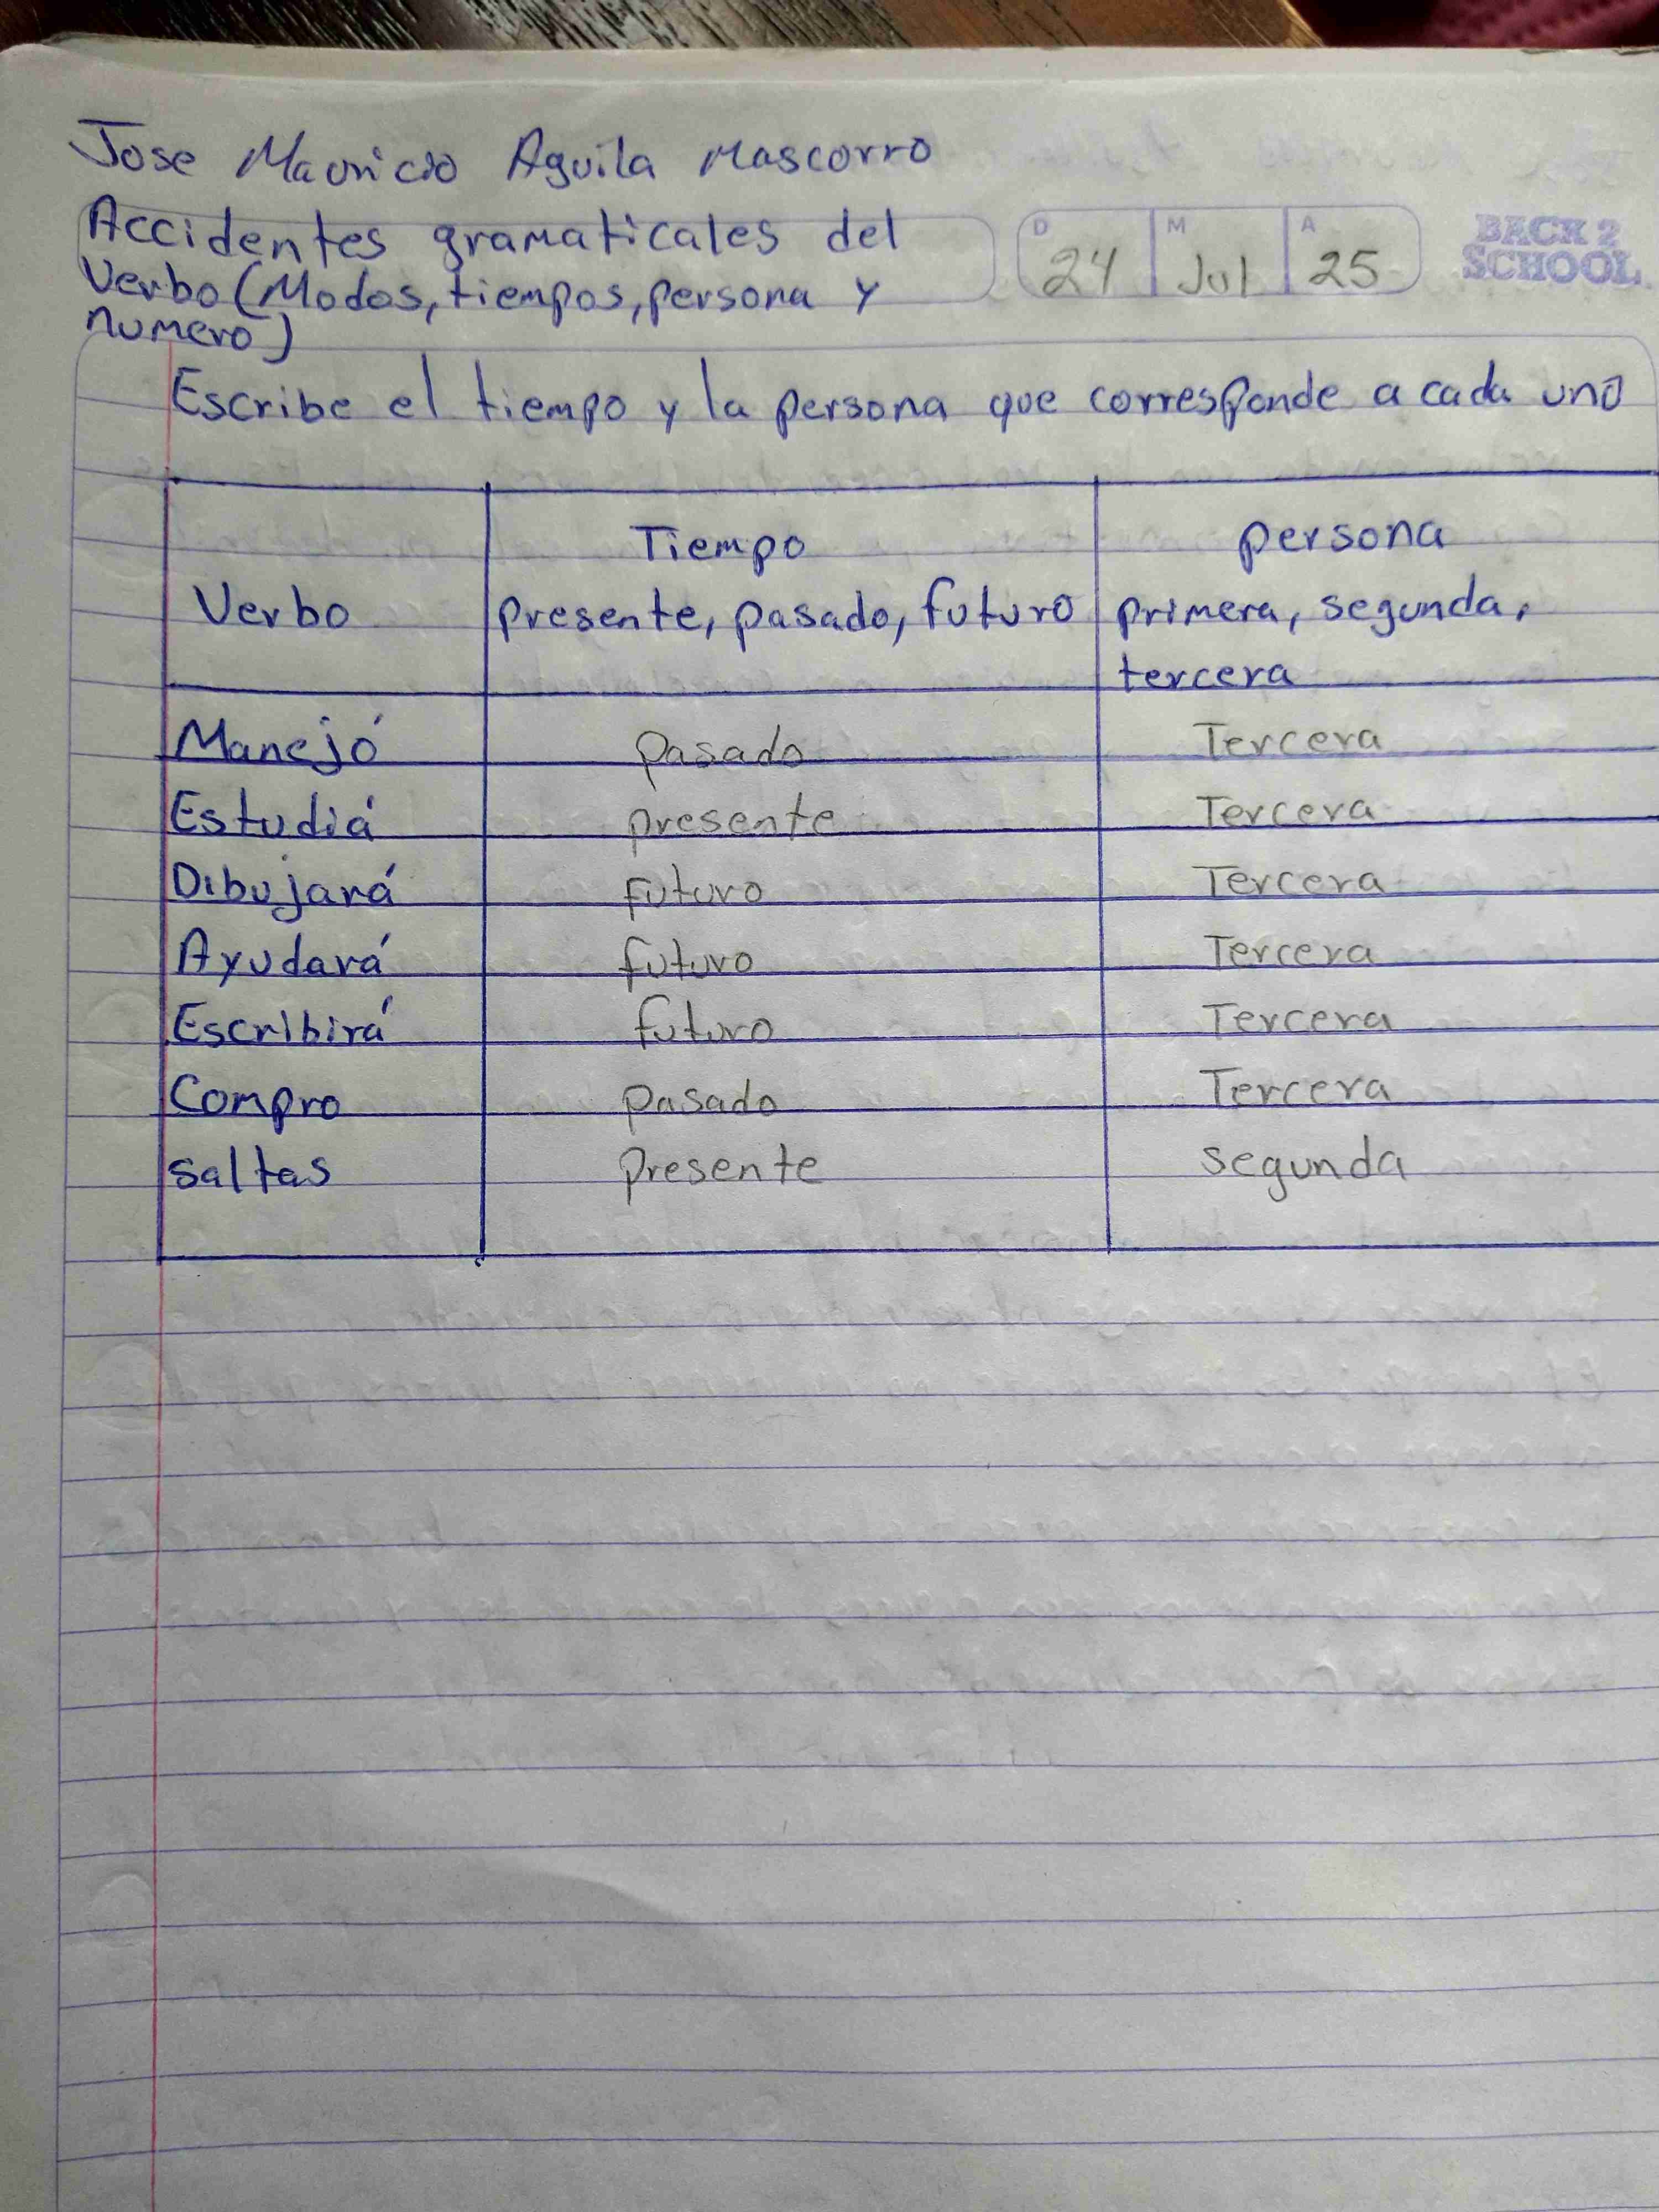 Jose Mauricio Aguila Mascorro
Accidentes gramaticales del
Verbo (Modos, tiempos, persona y
numero)
D 24 M Jul A 25
BACK 2
SCHOOL
Escribe el tiempo y la persona que corresponde a cada uno
Tiempo persona
Verbo presente, pasado, futuro primera, segunda,
tercera
Manejó pasado Tercera
Estudiá presente Tercera
Dibujará Futuro Tercera
Ayudará futuro Tercera
Escribirá futuro Tercera
Compro pasado Tercera
saltas presente segunda